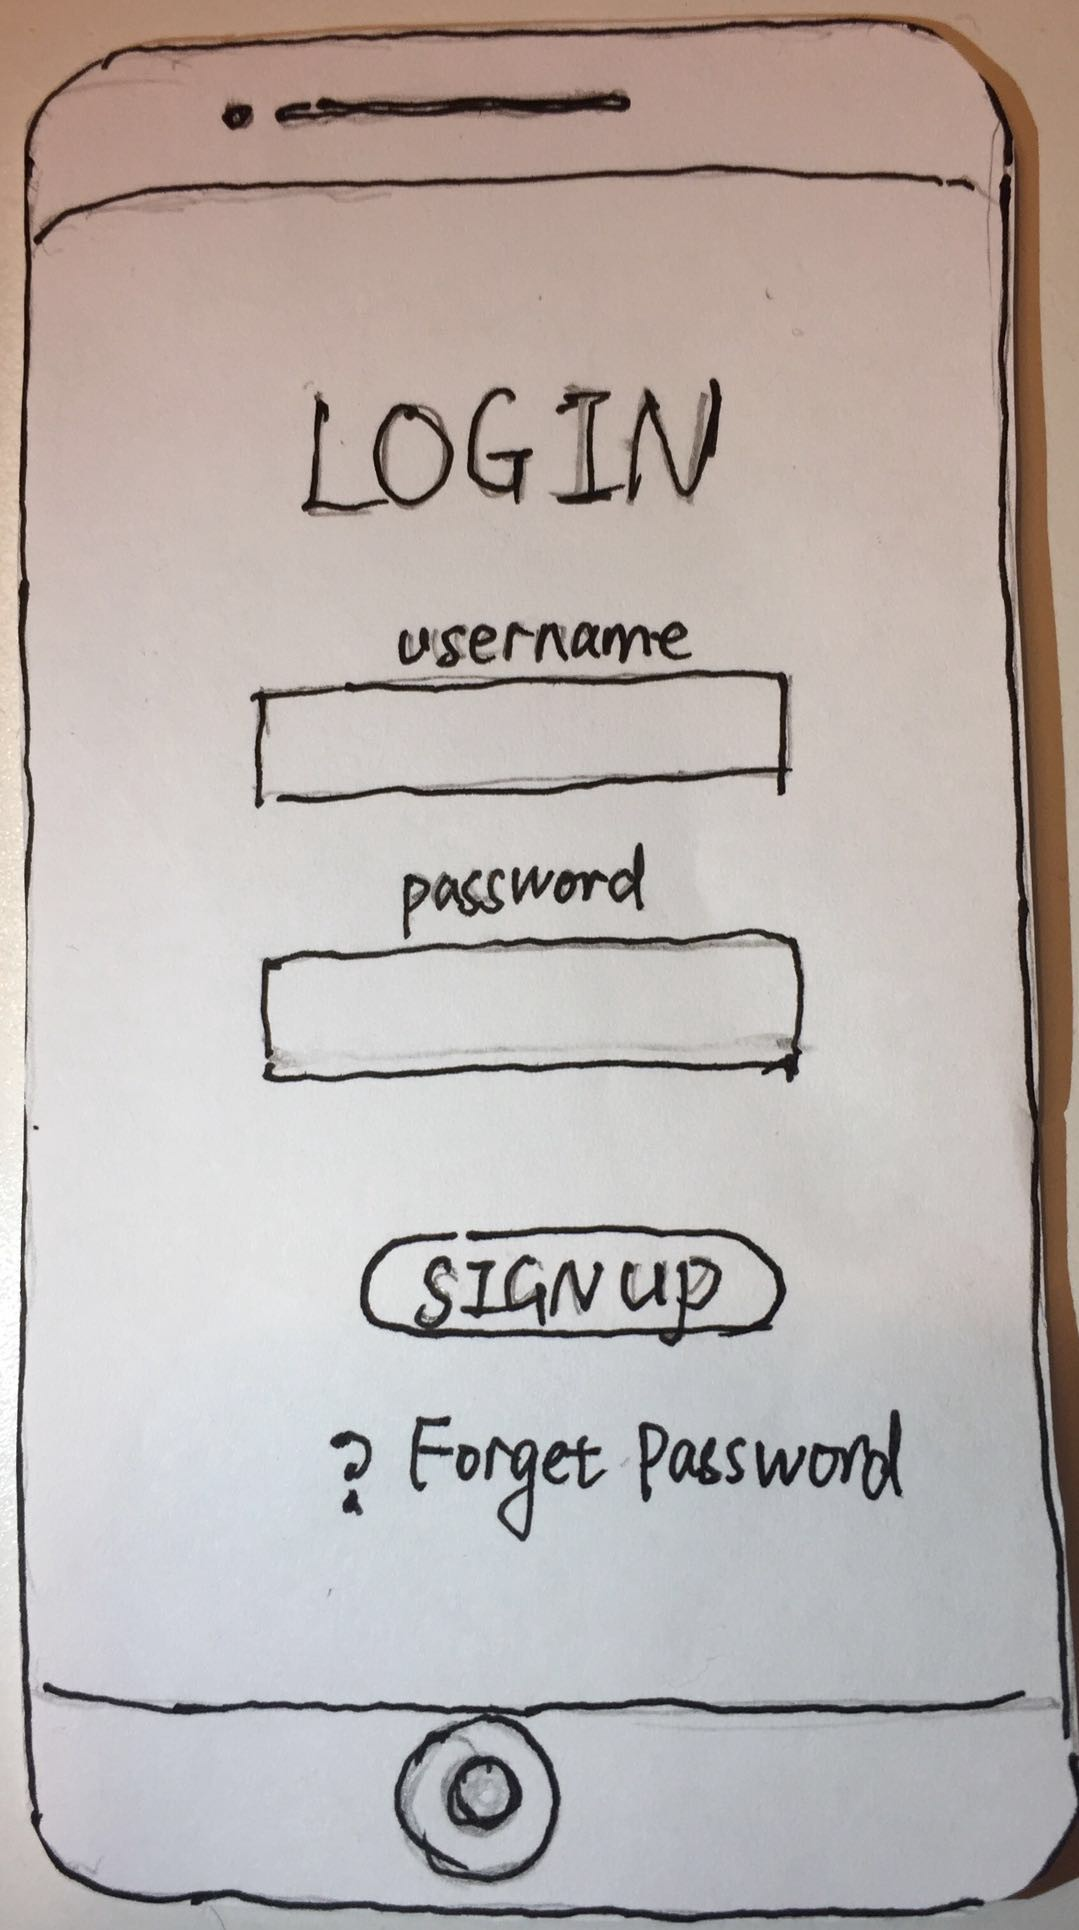 LOGIN
username
password
SIGN UP
? Forget Password